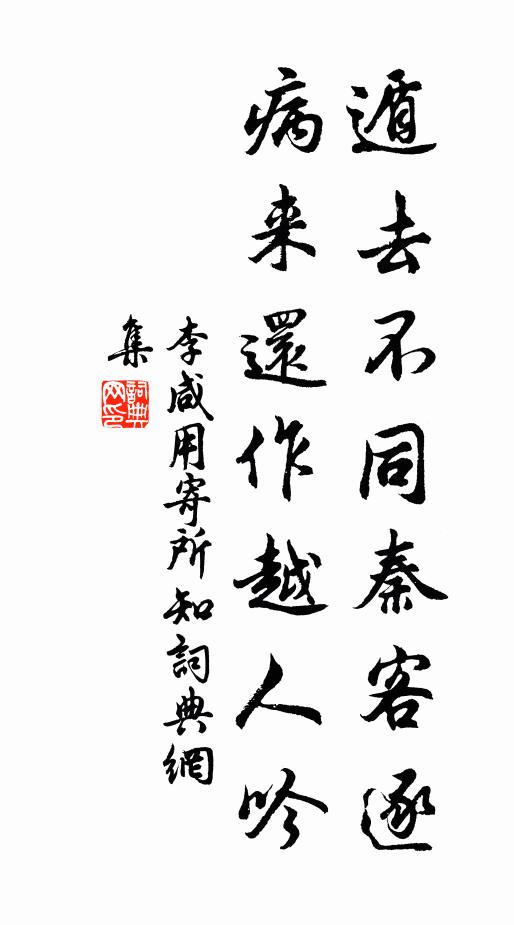 遁去不同秦客逐
病来還作越人吟
李咸用寄所知詞典網
集
詞典
网印